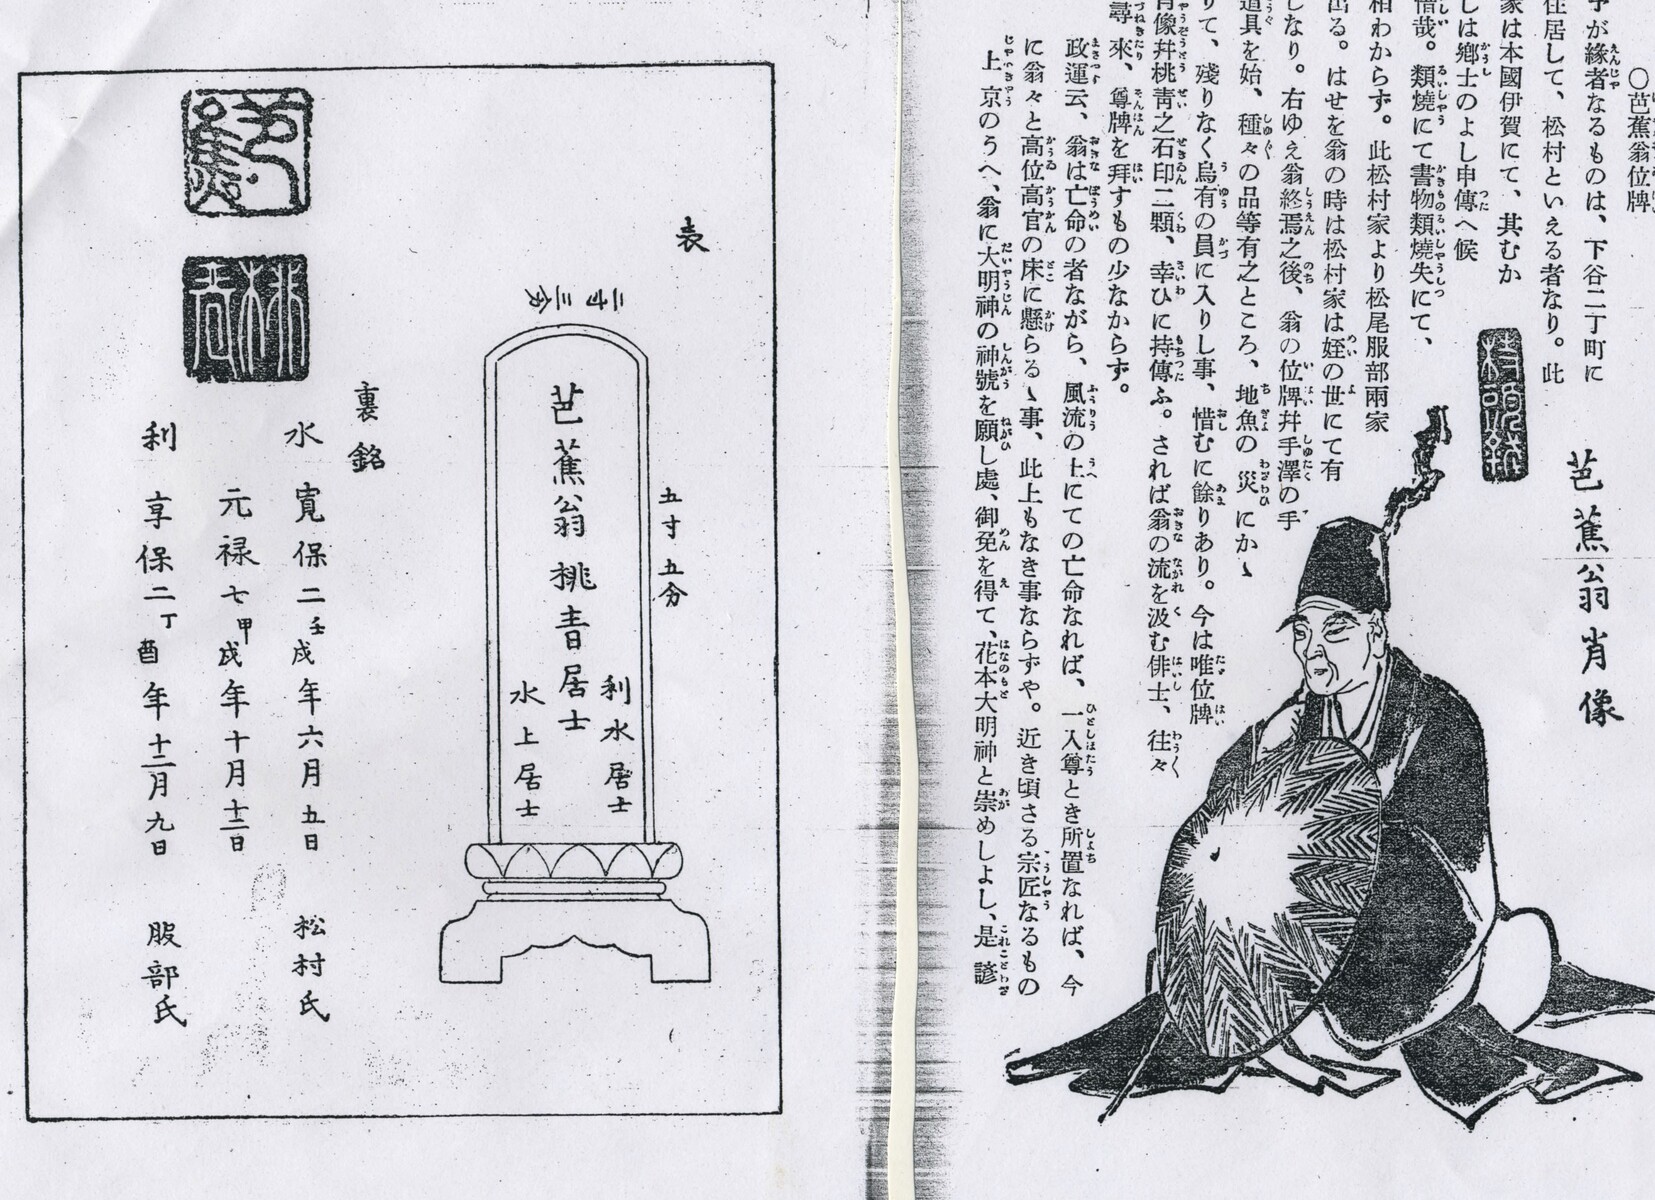 ○芭蕉翁位牌
予が緣者なるものは、下谷二丁町に
住居して、松村といえる者なり。此
家は本國伊賀にて、其むか
しは鄕士のよし申傳へ候
惜哉。類燒にて書物類燒失にて、
相わからず。此松村家より松尾服部兩家
出る。はせを翁の時は松村家は姪の世にて有
しなり。右ゆえ翁終焉之後、翁の位牌幷手澤の手
道具を始、種々の品等有之ところ、地魚の災にかゝ
りて、殘りなく烏有の員に入りし事、惜むに餘りあり。今は唯位牌
肖像幷桃靑之石印二顆、幸ひに持傳ふ。されば翁の流を汲む俳士、往々
尋來、尊牌を拜すもの少なからず。
政運云、翁は亡命の者ながら、風流の上にての亡命なれば、一入尊とき所置なれば、今
に翁々と高位高官の床に懸らるゝ事、此上もなき事ならずや。近き頃さる宗匠なるもの
上京のうへ、翁に大明神の神號を願し處、御免を得て、花本大明神と崇めしよし、是諺
芭蕉翁肖像
表
二寸三分
五寸五分
利水居士
芭蕉翁桃青居士
水上居士
裏銘
水 寬保二壬戌年六月五日 松村氏
元禄七甲戌年十月十二日
利 享保二丁酉年十二月九日 服部氏
芭蕉
桃青